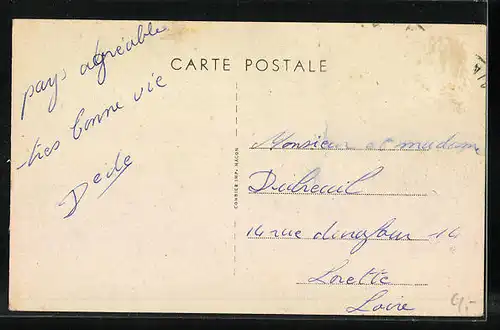 pays agréable
très bonne vie
Dede
CARTE POSTALE
COMBIER IMP. MACON
Monsieur et madame
Dubreuil
14 rue 14
Lorette
Loire
4,-